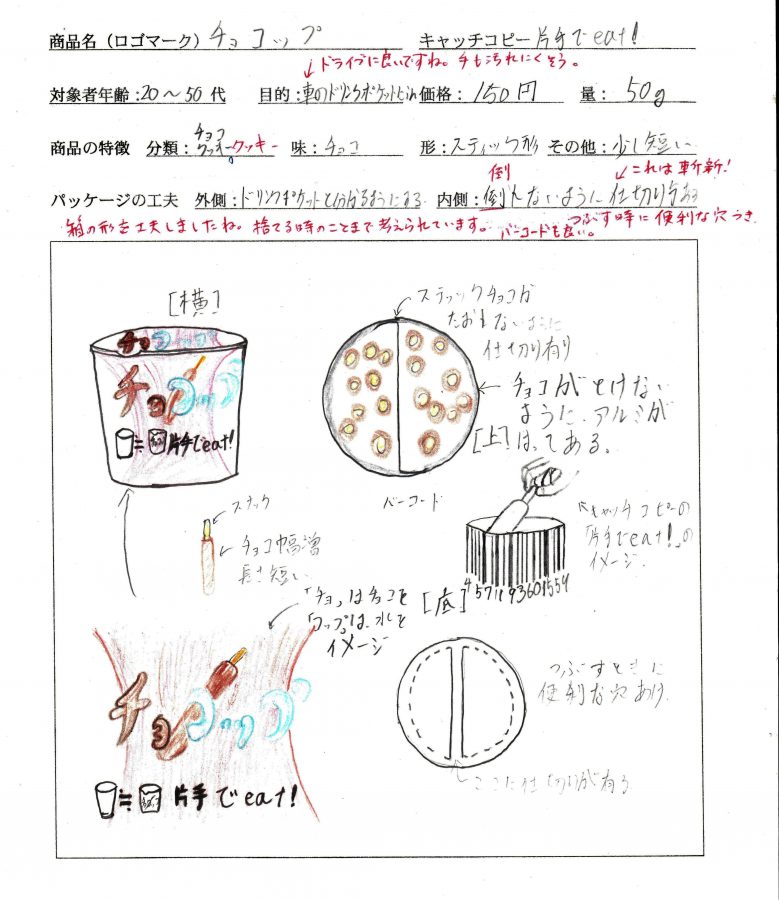 商品名（ロゴマーク）チョコップ キャッチコピー片手でeat!
ドライブに良いですね。手も汚れにくそう。
対象者年齢：20～50代 目的：車のドリンクポケットにin 価格：150円 量：50g
商品の特徴 分類：チョコクッキー クッキー 味：チョコ 形：スティック形 その他：少し短い
倒 これは斬新！
パッケージの工夫 外側：ドリンクポケットと分かるようにする 内側：倒れないように仕切り有る
箱の形を工夫しましたね。捨てる時のことまで考えられています。バーコードも良い。つぶす時に便利な穴つき
[横]
スティックチョコが
たおれないように
仕切り有り
チョコ
チョコップ
≒ 片手でeat!
チョコがとけない
ように、アルミが
はってある。
[上]
バーコード
スナック
チョコ幅増
長さ短い
キャッチコピーの
「片手でeat!」の
イメージ
4571193601559
「チョ」はチョコを
「コップ」は、水を
イメージ
[底]
つぶすときに
便利な穴あけ
チョコップ
≒ 片手でeat!
ここに仕切りが有る